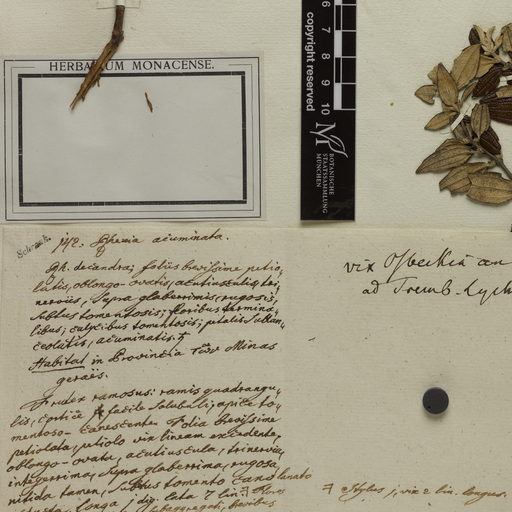 HERBARIUM MONACENSE.
copyright reserved
6 7 8 9 10
BOTANISCHE
STAATSSAMMLUNG
MÜNCHEN
acuminata.
Rh. decandra, foliis brevissime petio,
latis, oblongo-ovatis, acutiusculis, tri,
nerviis, supra glaberrimis, rugosis,
subtus tomentosis; floribus termina,
libus; calycibus tomentosis; petalis sublan,
ceolatis, acuminatis. ♄
Habitat in Provincia Minas
geraës.
Frutex ramosus: ramis quadrangu,
lis, cortice facile solubili; apice to,
mentoso-canescente. Folia brevissime
petiolata, petiolo vix lineam excedente,
oblongo-ovata, acutiuscula, trinervia,
integerrima, supra glaberrima, rugosa,
nitida tamen, subtus tomento cano
lanato
longa j dig. lata 7 lin. Flores
vix Osbeckia an
ad Tremb.
Stylus j, vix 2 lin. longus.